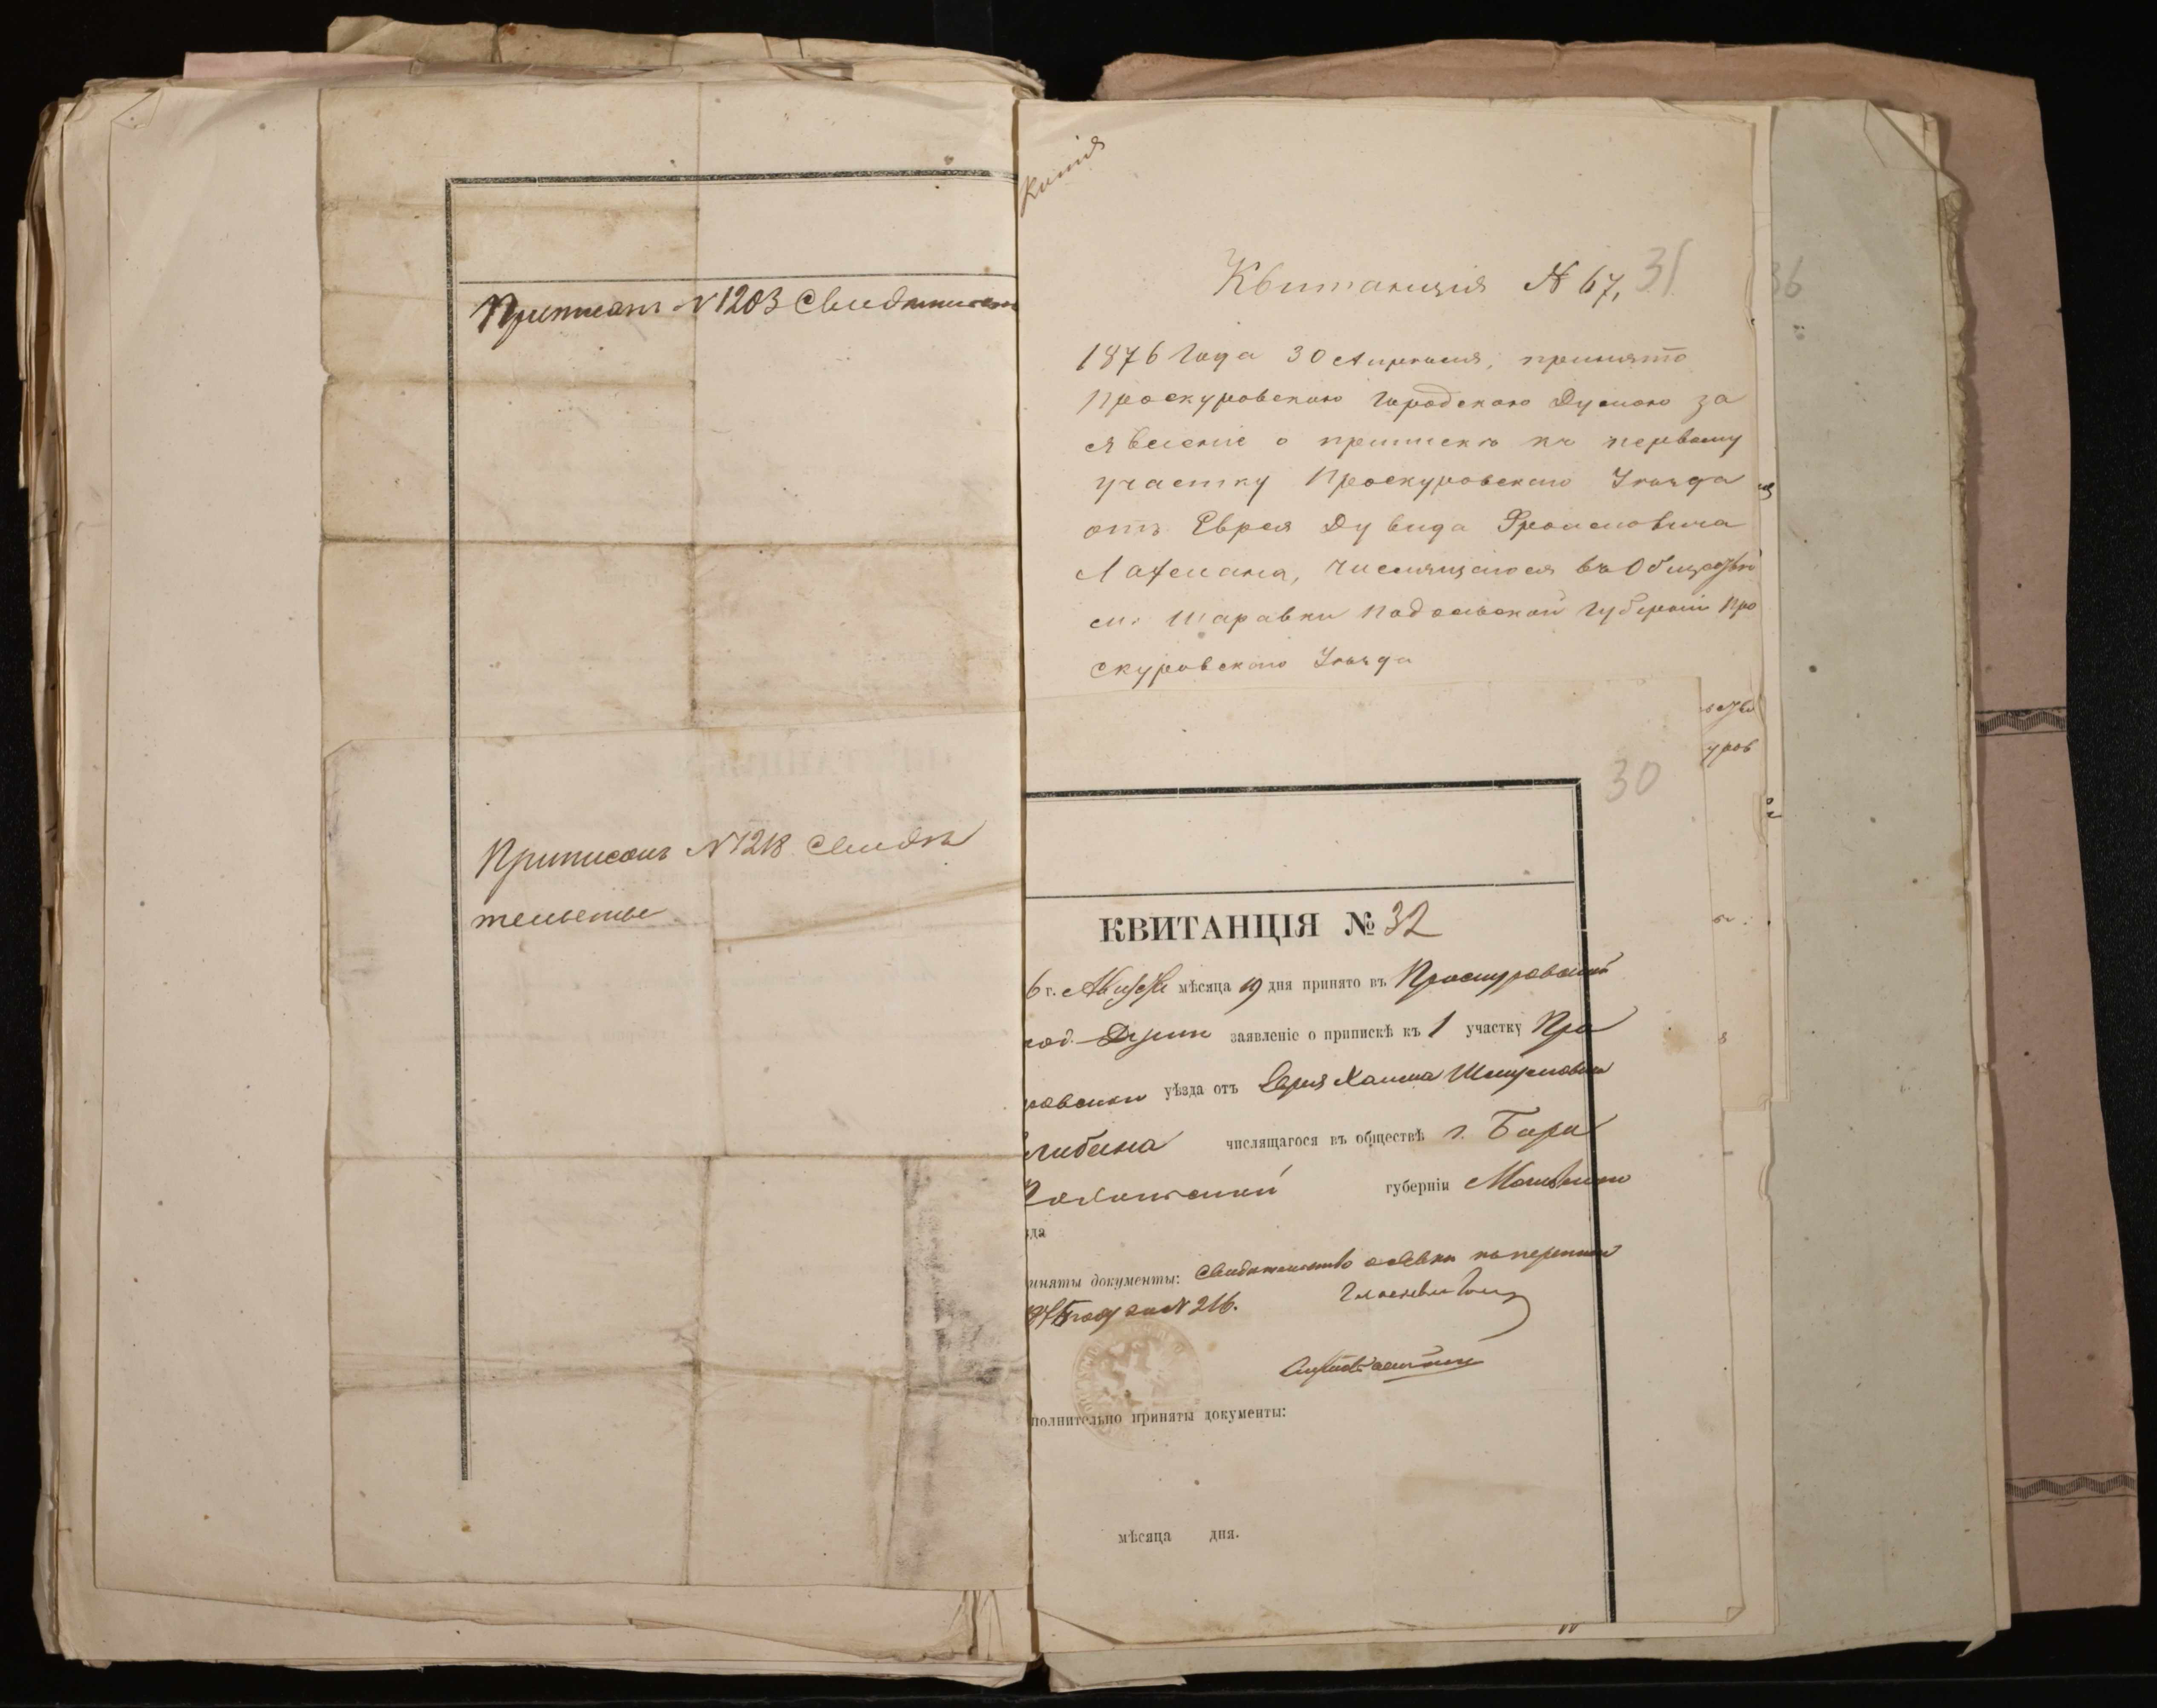 Приписанъ N 1203 Свидѣтельств
Приписанъ N 1218 Свидѣ
тельстве
Копія
Квитанція N 67,
31
36
1876 Года 30 Апрѣля, принято
Проскуровскою Городскою Думою за
явленіе о припискѣ къ первому
участку Проскуровскаго Уѣзда
отъ Еврея Дувида Фроимовича
Лахмана, числящагося въ Обществѣ
м. Шаравки Подольской Губерніи Про
скуровскаго Уѣзда
уров
30
КВИТАНЦІЯ № 32
6 г. Августа мѣсяца 19 дня принято въ Проскуровской
род. Думѣ заявленіе о припискѣ къ 1 участку Про
ровскаго уѣзда отъ Еврея Хаима Шмулевича
числящагося въ обществѣ г. Бара
губерніи Могилевскаго
зда
иняты документы: Свидѣтельство о явкѣ къ переписи
N 216.
полнительно приняты документы:
мѣсяца дня.